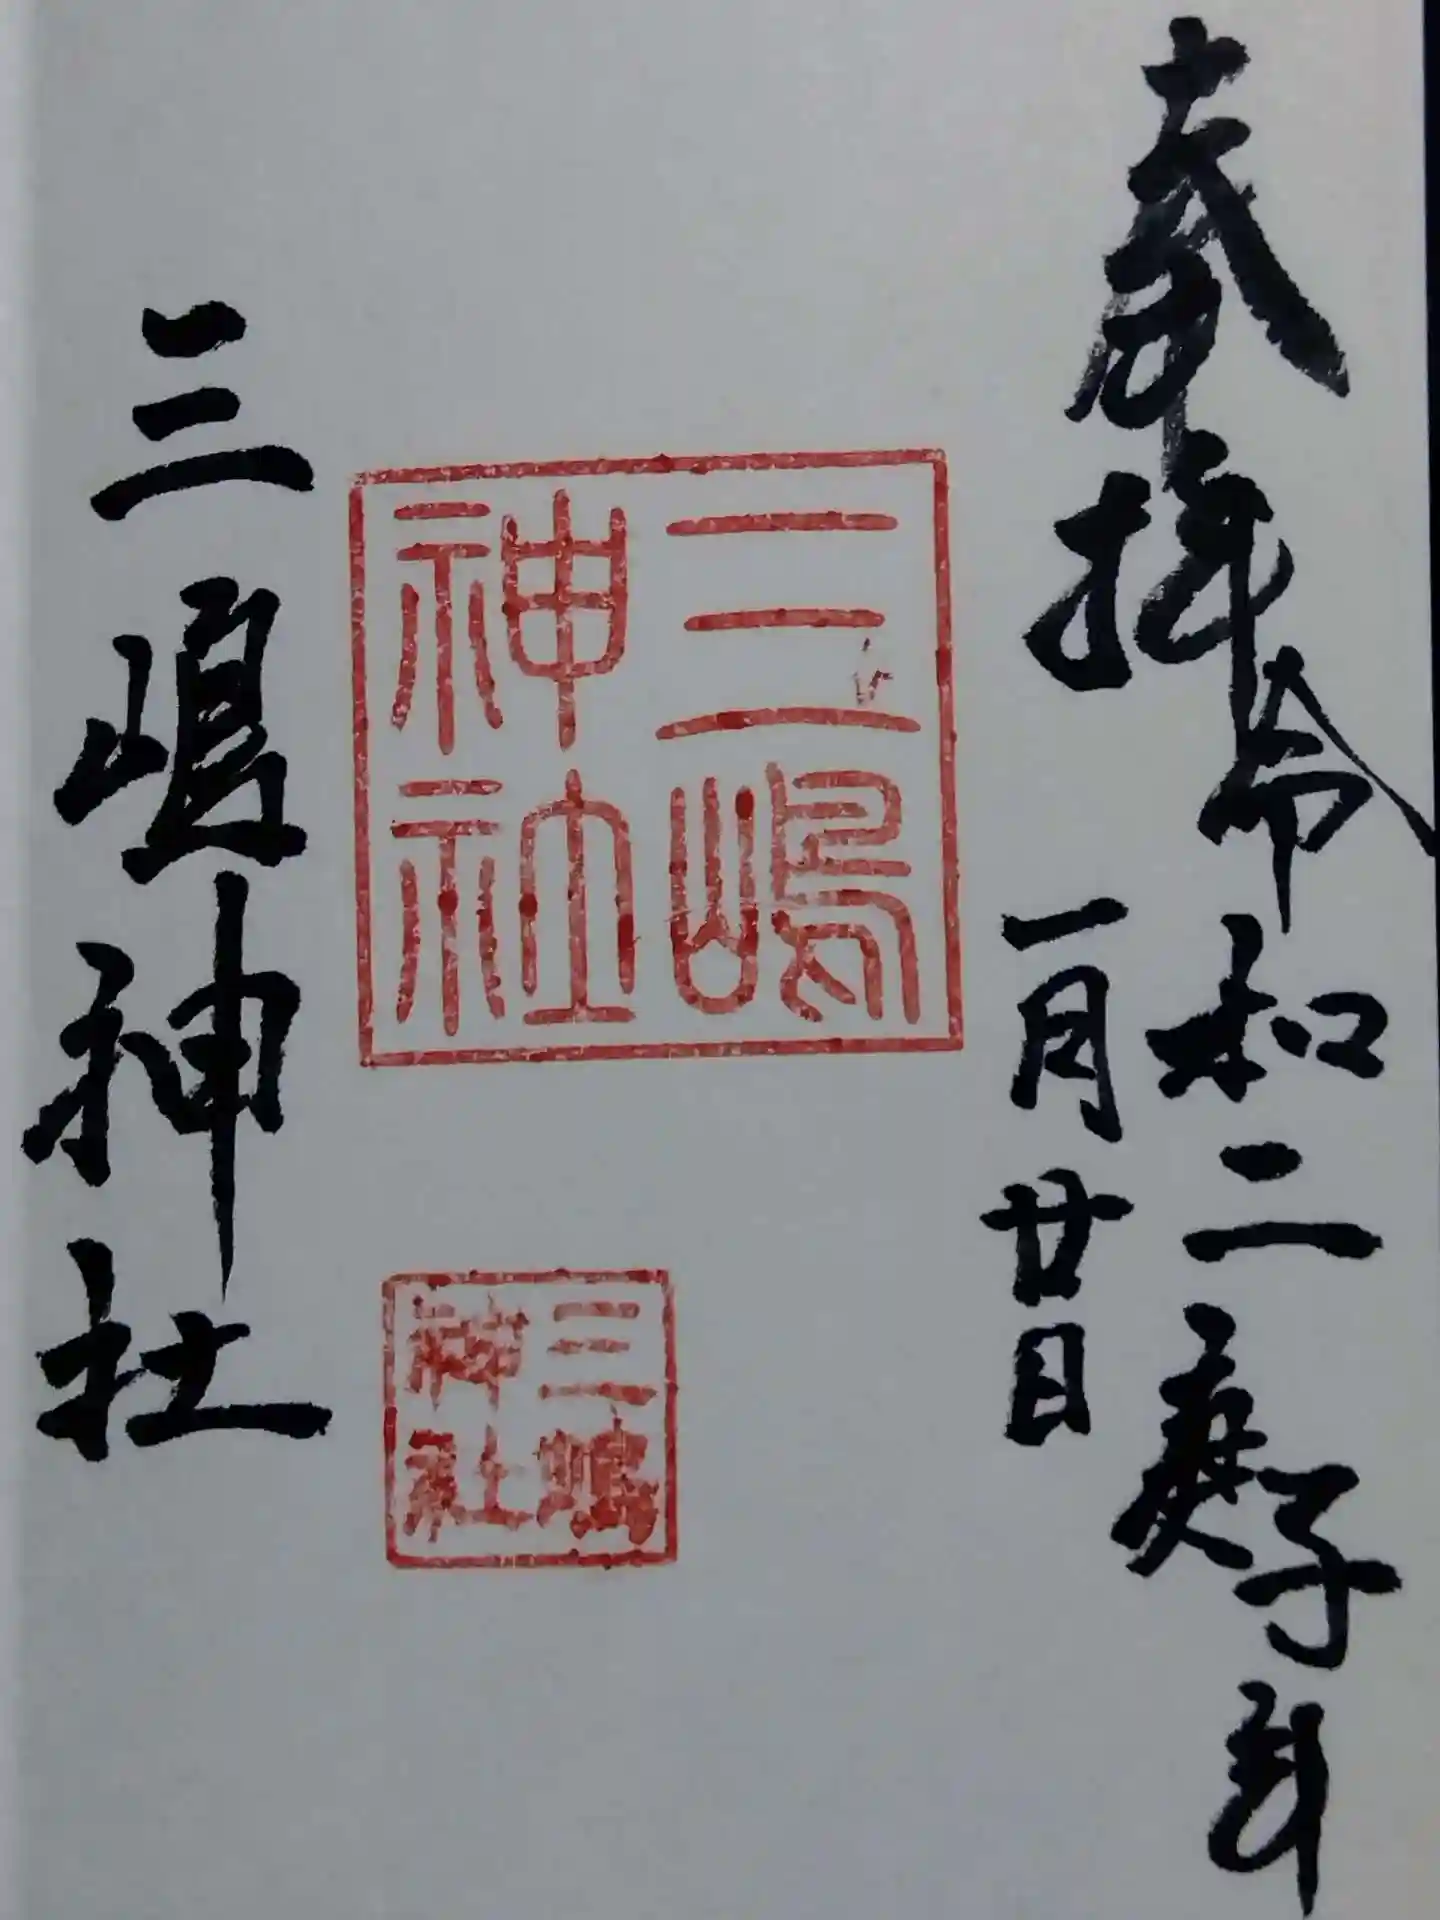 奉拝令和二庚子年
一月廿日
三嶋
神社
三嶋
神社
三嶋神社